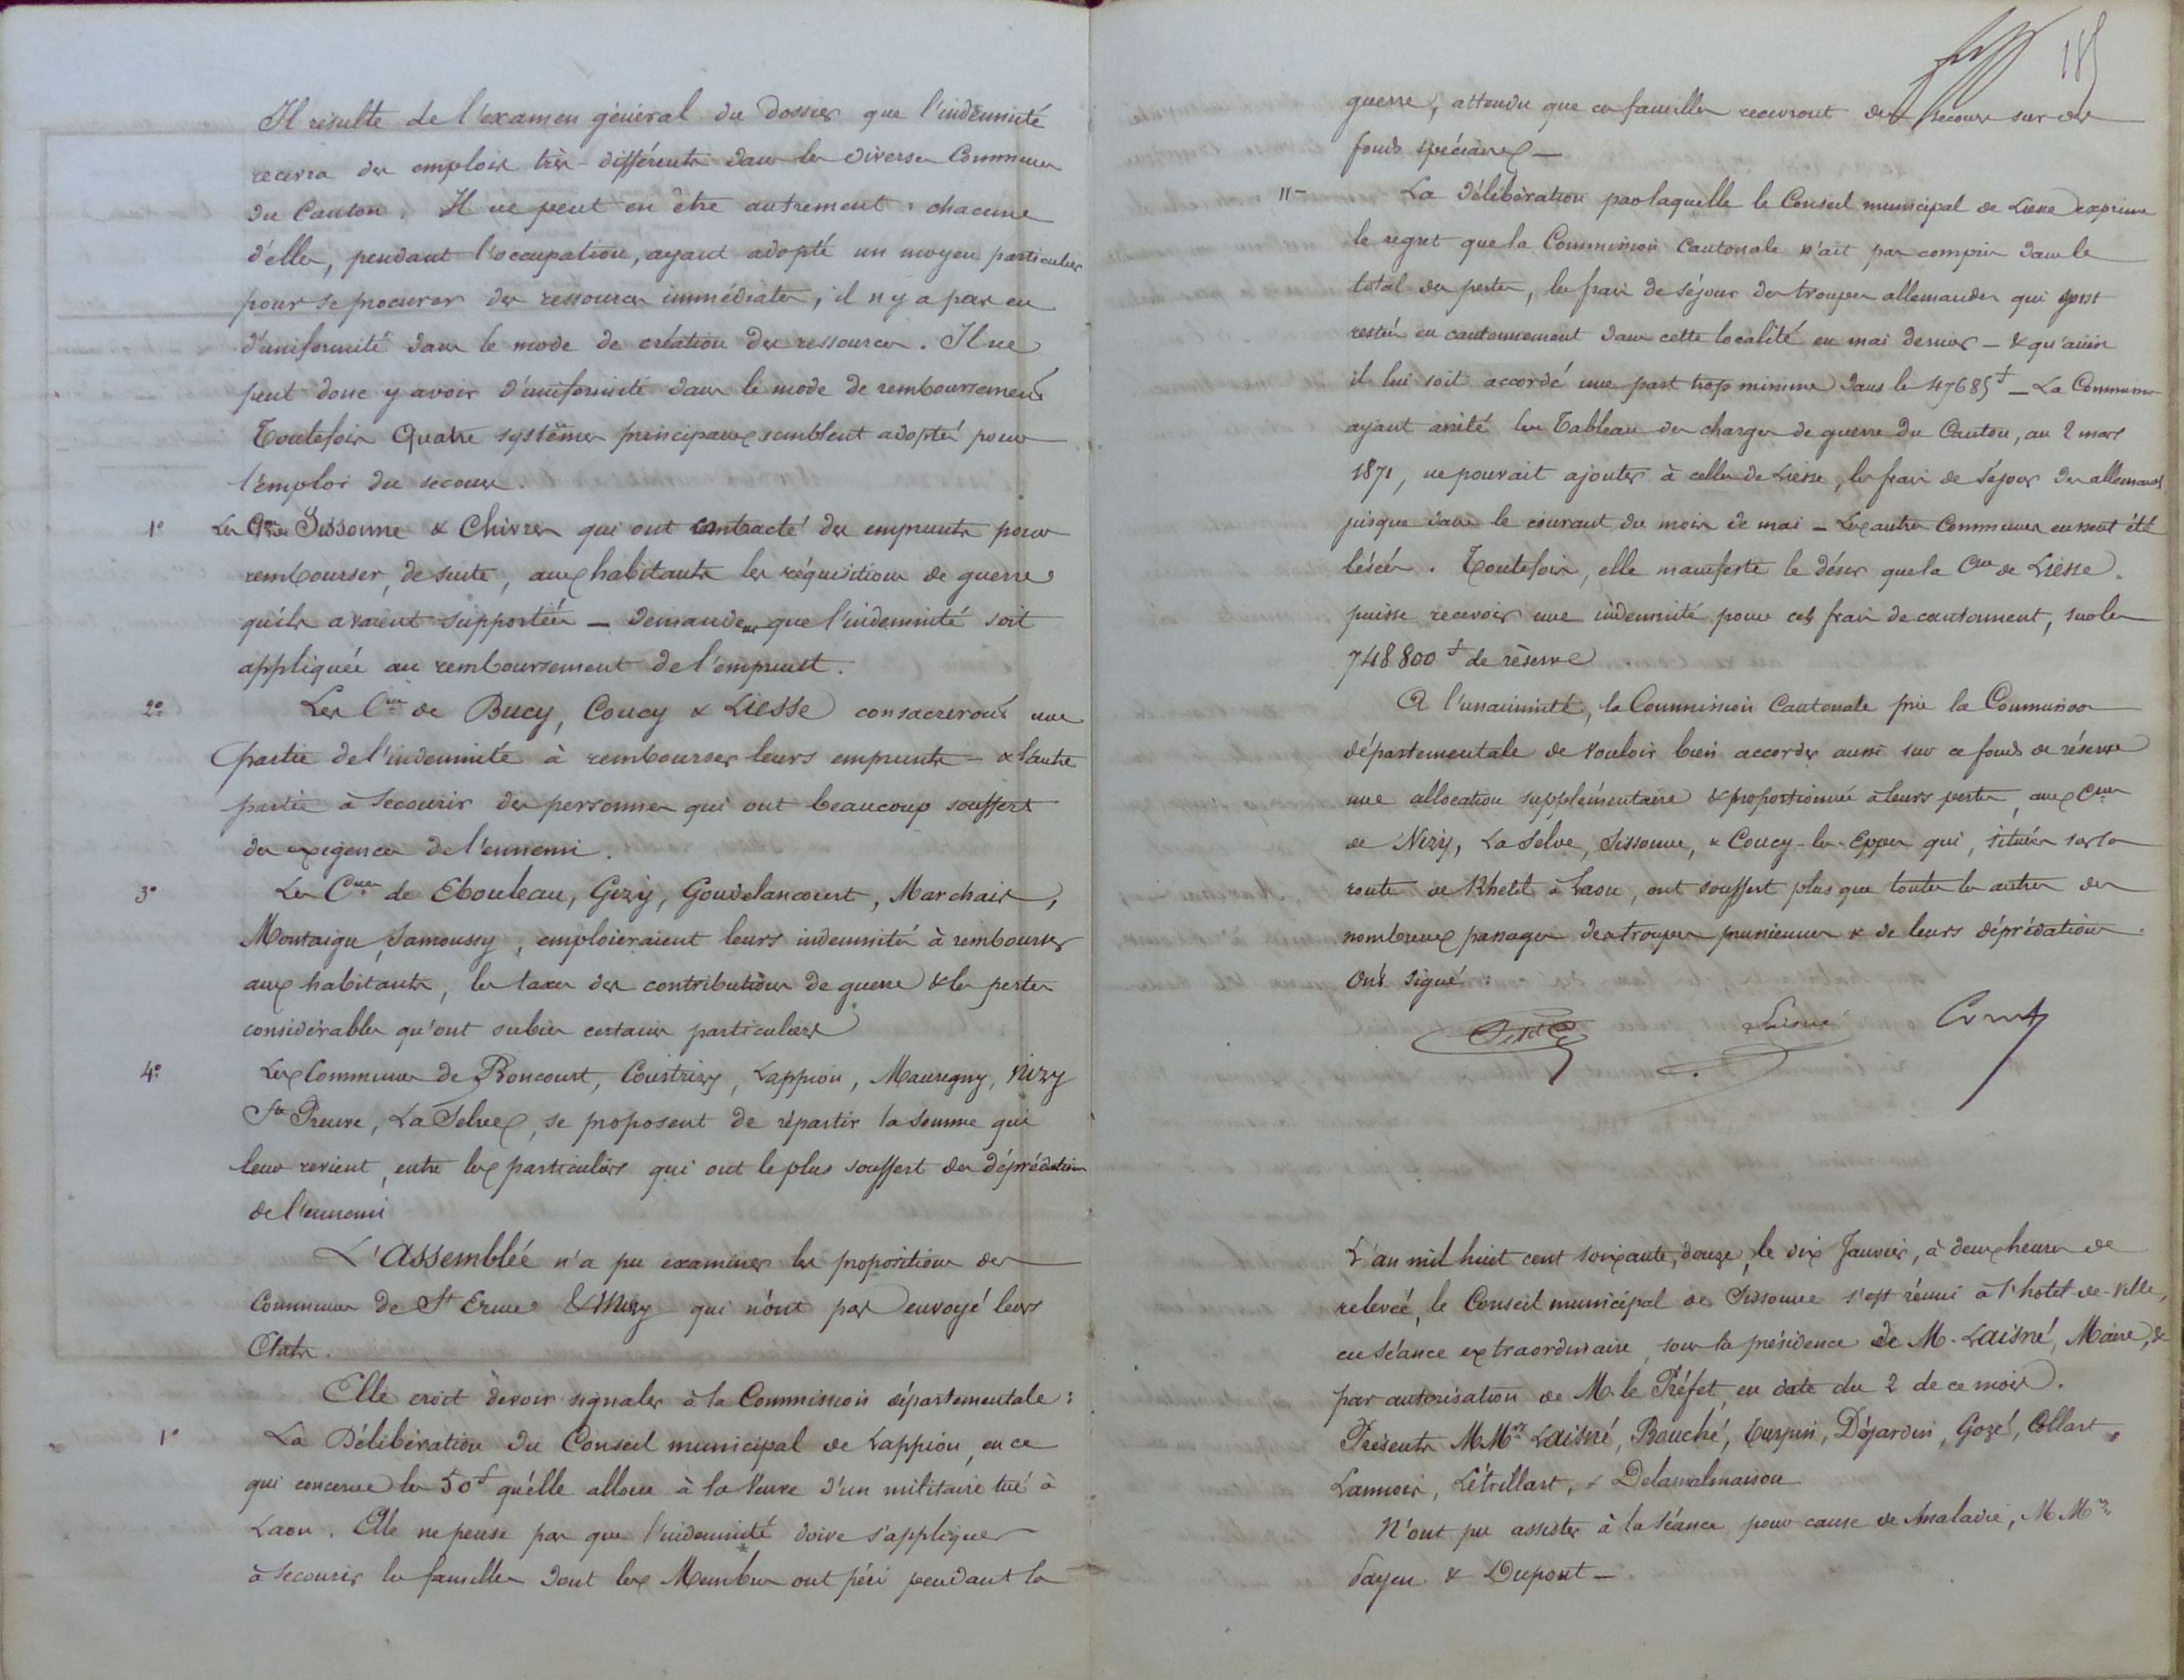 Il résulte de l'examen général du Dossier que l'indemnité
recevra des emplois très-différents dans les diverses Communes
du Canton. Il ne peut en être autrement : chacune
d'elles, pendant l'occupation, ayant adopté un moyen particulier
pour se procurer des ressources immédiates, il n'y a pas eu
d'uniformité dans le mode de création des ressources. Il ne
peut donc y avoir d'uniformité dans le mode de remboursement
Toutefois Quatre systèmes principaux semblent adoptés pour
l'emploi du secours.
1° Les Cnes Sissonne & Chivres qui ont contracté des emprunts pour
rembourser, de suite, aux habitants les réquisitions de guerre
qu'ils avaient supportées — demandent que l'indemnité soit
appliquée au remboursement de l'emprunt.
2° Les Cnes de Bucy, Coucy & Liesse consacreront une
partie de l'indemnité à rembourser leurs emprunts — & l'autre
partie à secourir des personnes qui ont beaucoup souffert
des exigences de l'ennemi.
3° Les Cnes de Ebouleau, Gizy, Goudelancourt, Marchais,
Montaigu, Samoussy, emploieraient leurs indemnités à rembourser
aux habitants, les taxes des contributions de guerre & les pertes
considérables qu'ont subies certains particuliers
4° Les Communes de Boncourt, Courtrizy, Lappion, Mauregny, Nizy
Ste Preuve, La Selve, se proposent de répartir la somme qui
leur revient, entre les particuliers qui ont le plus souffert des déprédations
de l'ennemi
L'Assemblée n'a pu examiner les propositions des
Communes de St Erme & qui n'ont pas envoyé leurs
Etats.
Elle croit devoir signaler à la Commission départementale :
1° La Délibération du Conseil municipal de Lappion, en ce
qui concerne les 50f qu'elle alloue à la Veuve d'un militaire tué à
Laon. Elle ne pense pas que l'indemnité doive s'appliquer
à secourir les familles dont les Membres ont péri pendant la
185
guerre, attendu que ces familles recevront des secours sur des
fonds spéciaux —
11— La délibération par laquelle le Conseil municipal de Liesse exprime
le regret que la Commission Cantonale n'ait pas compris dans le
total des pertes, les frais de séjour des troupes allemandes qui sont
restées en cantonnement dans cette localité en mai dernier — & qu'ainsi
il lui soit accordé une part trop minime dans les 47685f — La Commune
ayant arrêté les Tableau des charges de guerre du Canton, au 2 mars
1871, ne pouvait ajouter à celles de Liesse, les frais de séjour des allemands
jusque dans le courant du mois de mai — Les autres Communes eussent été
lésées. Toutefois, elle manifeste le désir que la Cne de Liesse
puisse recevoir une indemnité pour ces frais de cantonnent, sur les
748800f de réserve
A l'unanimité, la Commission Cantonale prie la Commission
départementale de vouloir bien accorder aussi sur ce fonds de réserve
une allocation supplémentaire & proportionnée à leurs pertes, aux Cnes
de Nizy, La Selve, Sissonne, & Coucy-les-Eppes qui, situées sur la
route de Rhetel à Laon, ont souffert plus que toutes les autres des
nombreux passages des troupes prussiennes & de leurs déprédations.
Ont signé :
Laisné
L'an mil huit cent soixante, douze, le dix Janvier, à deux heures de
relevée, le Conseil municipal de Sissonne s'est réuni à l'hotel-de-Ville,
en séance extraordinaire, sous la présidence de M. Laisné, Maire, &
par autorisation de M. le Préfet, en date du 2 de ce mois.
Présents M.Mrs Laisné, Bouché, Turpin, Déjardin, Gozé, Collart,
Lannois, Létrillart, & Delamalmaison
N'ont pu assister à la séance, pour cause de Maladie, M.Mrs
Payen & Dupont —